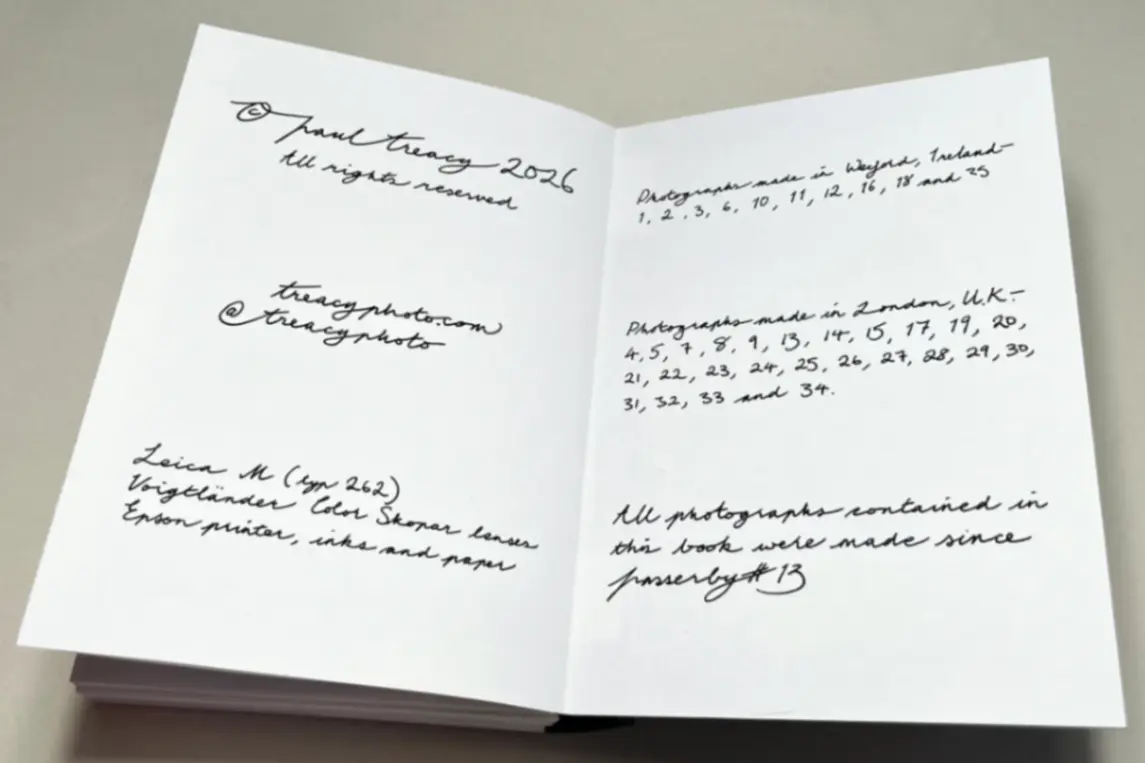 © paul treacy 2026
All rights reserved
treacyphoto.com
@treacyphoto
Leica M (typ 262)
Voigtländer Color Skopar lenses
Epson printer, inks and paper
Photographs made in Wexford, Ireland-
1, 2, 3, 6, 10, 11, 12, 16, 18 and 35
Photographs made in London, U.K.-
4, 5, 7, 8, 9, 13, 14, 15, 17, 19, 20,
21, 22, 23, 24, 25, 26, 27, 28, 29, 30,
31, 32, 33 and 34.
All photographs contained in
this book were made since
passerby #13